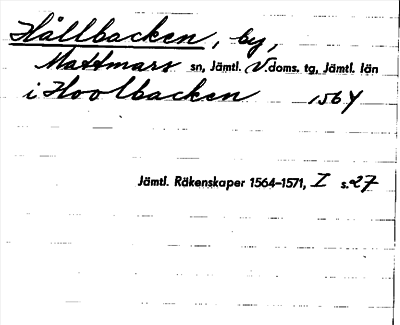 Hållbacken, by,
Mattmars sn, Jämtl. V.doms. tg, Jämtl. län
i Hoolbacken 1564
Jämtl. Räkenskaper 1564–1571, I s. 27